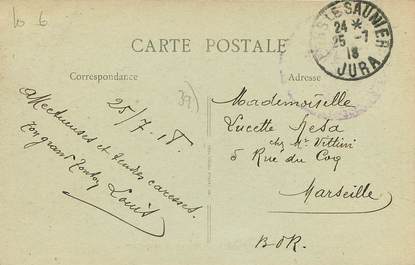 10 6
CARTE POSTALE
Correspondance
Adresse
LONS LE SAUNIER
24 *
25 -7
18
JURA
39)
25/7.18.
Affectueuses et tendres caresses.
Ton grand Tonton
Louis
Mademoiselle
Lucette Resa
chez Mr Vittini
5 Rue du Coq
Marseille
B.D.R.